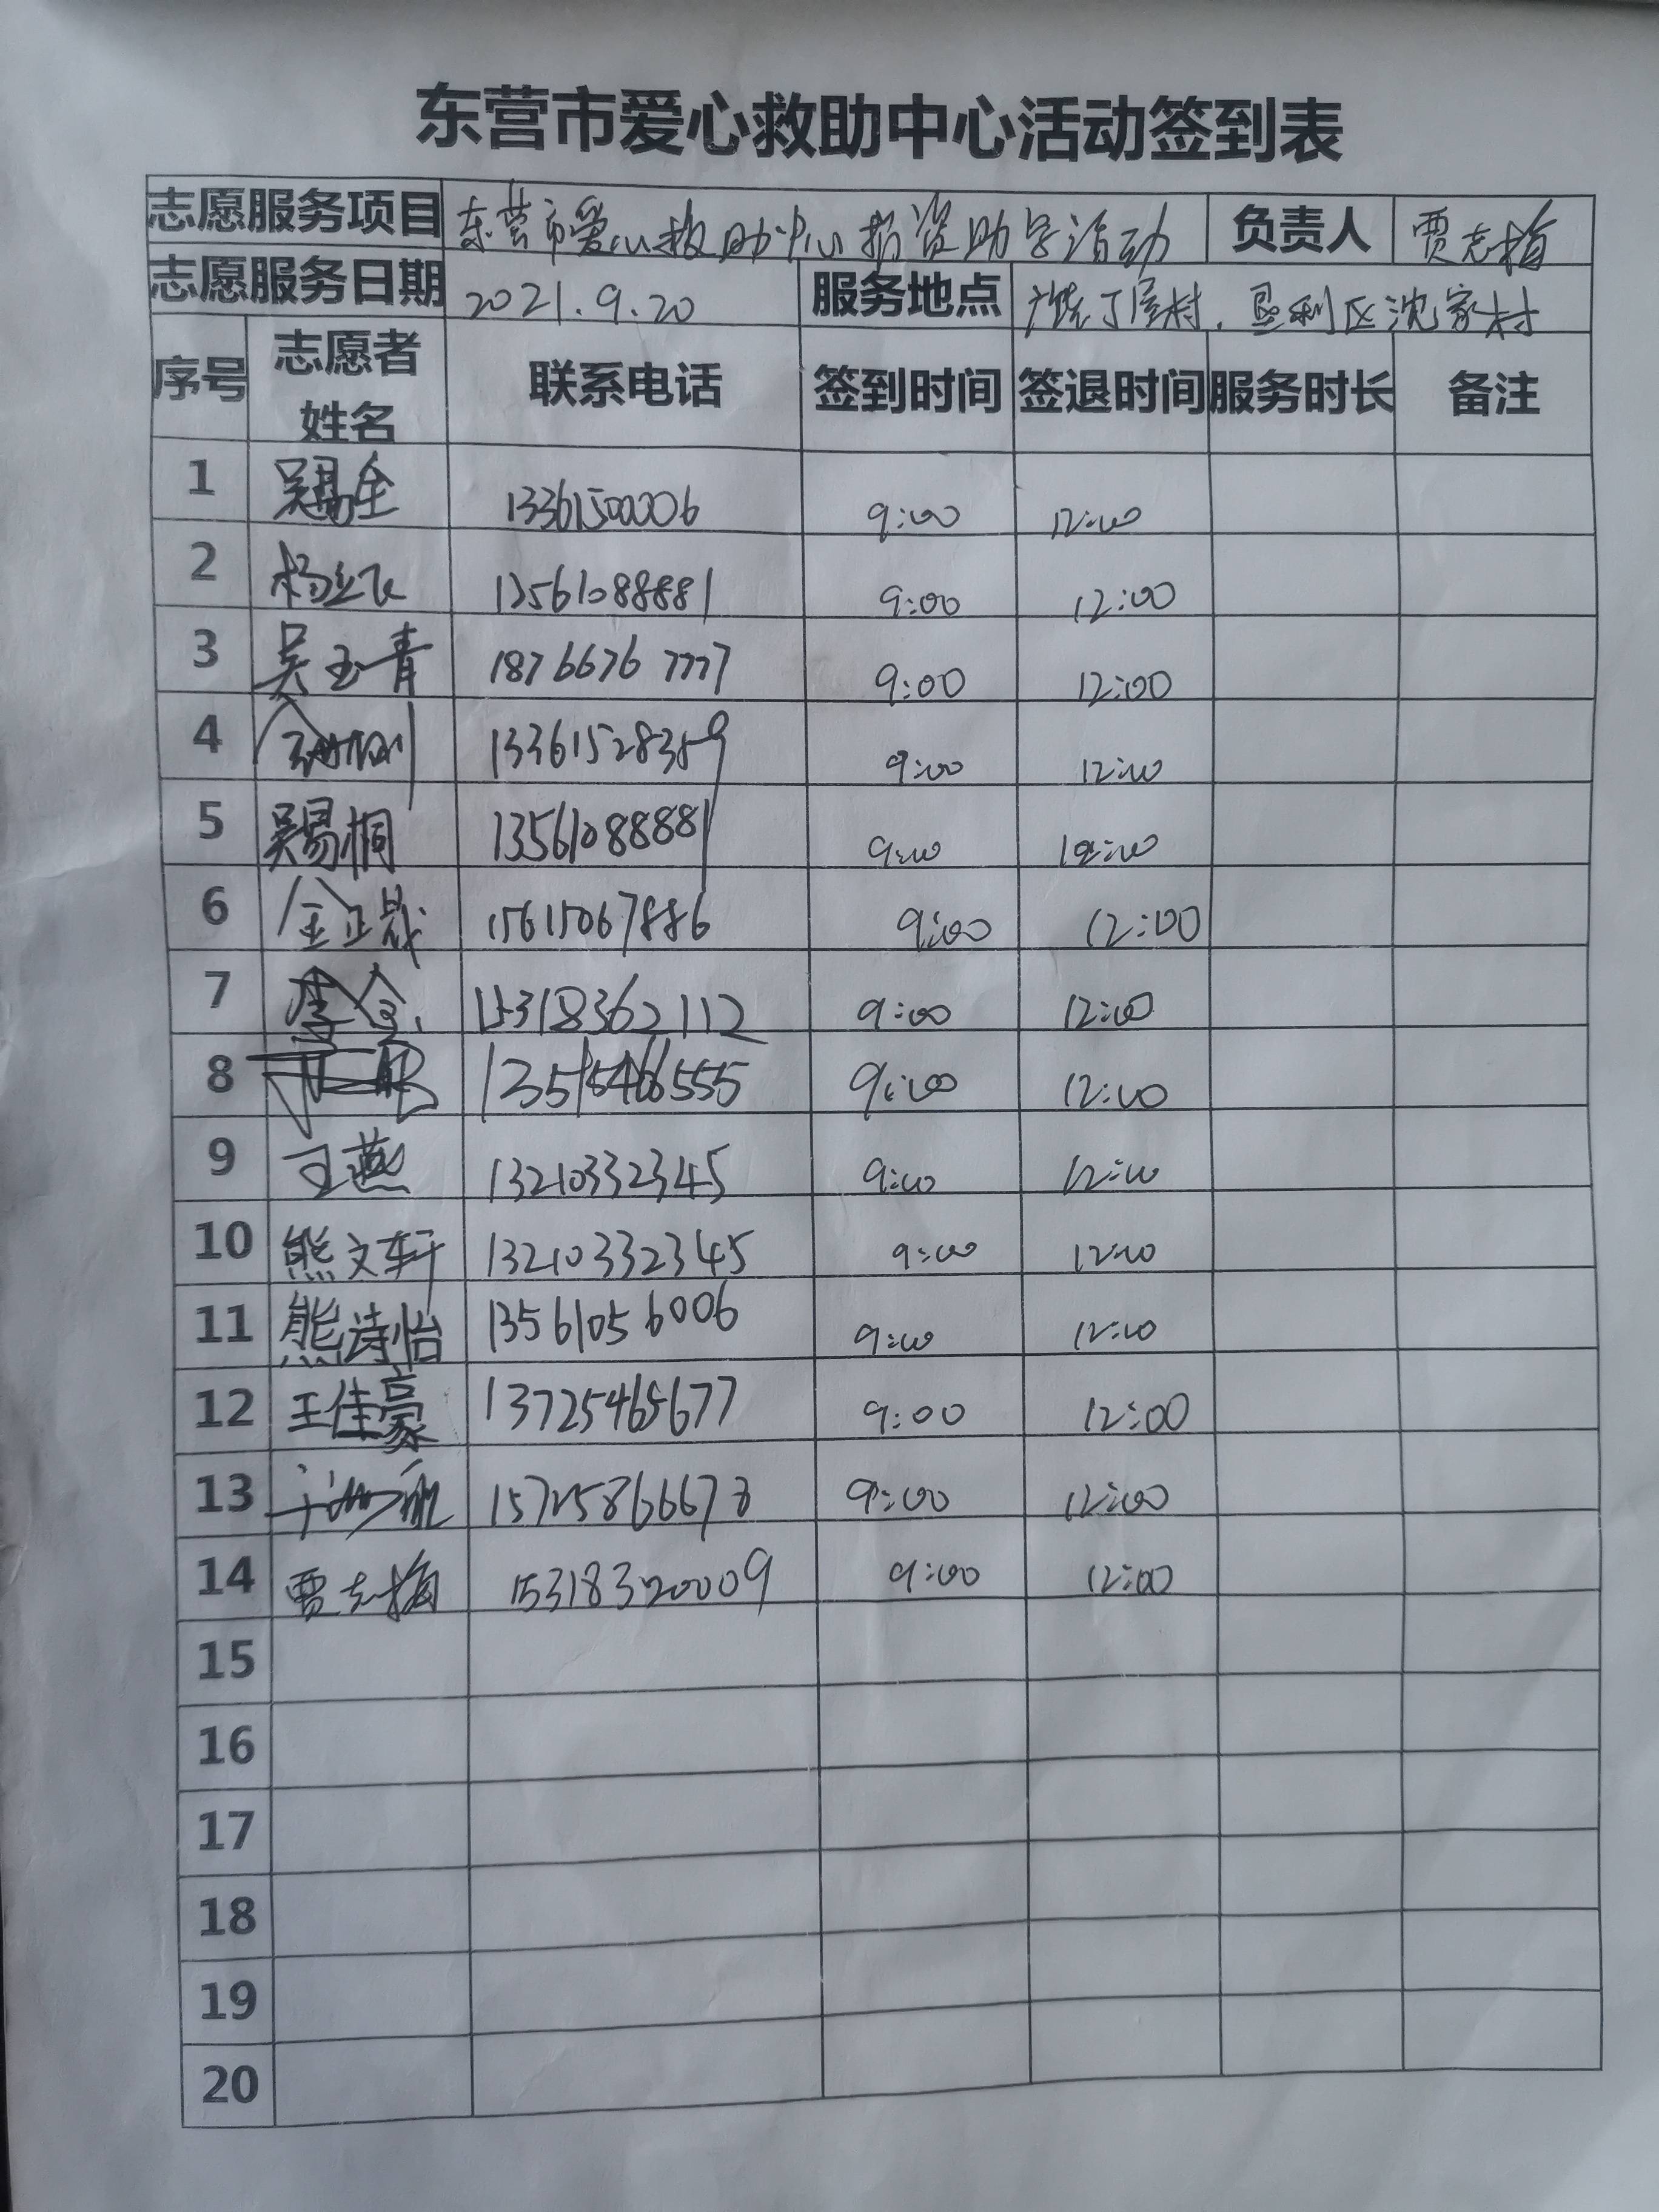 东营市爱心救助中心活动签到表
志愿服务项目 东营市爱心救助中心捐资助学活动 负责人 贾志梅
志愿服务日期 2021.9.20 服务地点 丁屋村、垦利区沈家村
序号 志愿者姓名 联系电话 签到时间 签退时间 服务时长 备注
1 13361500006 9:00 12:00
2 13561088881 9:00 12:00
3 吴玉青 18766767777 9:00 12:00
4 13361528359 9:00 12:00
5 吴易桐 13561088881 9:00 12:00
6 15615067886 9:00 12:00
7 15318362112 9:00 12:00
8 13515466555 9:00 12:00
9 王燕 13210332345 9:00 12:00
10 熊文轩 13210332345 9:00 12:00
11 熊诗怡 13561056006 9:00 12:00
12 王佳豪 13725465677 9:00 12:00
13 15725866678 9:00 12:00
14 贾志梅 15318320009 9:00 12:00
15
16
17
18
19
20